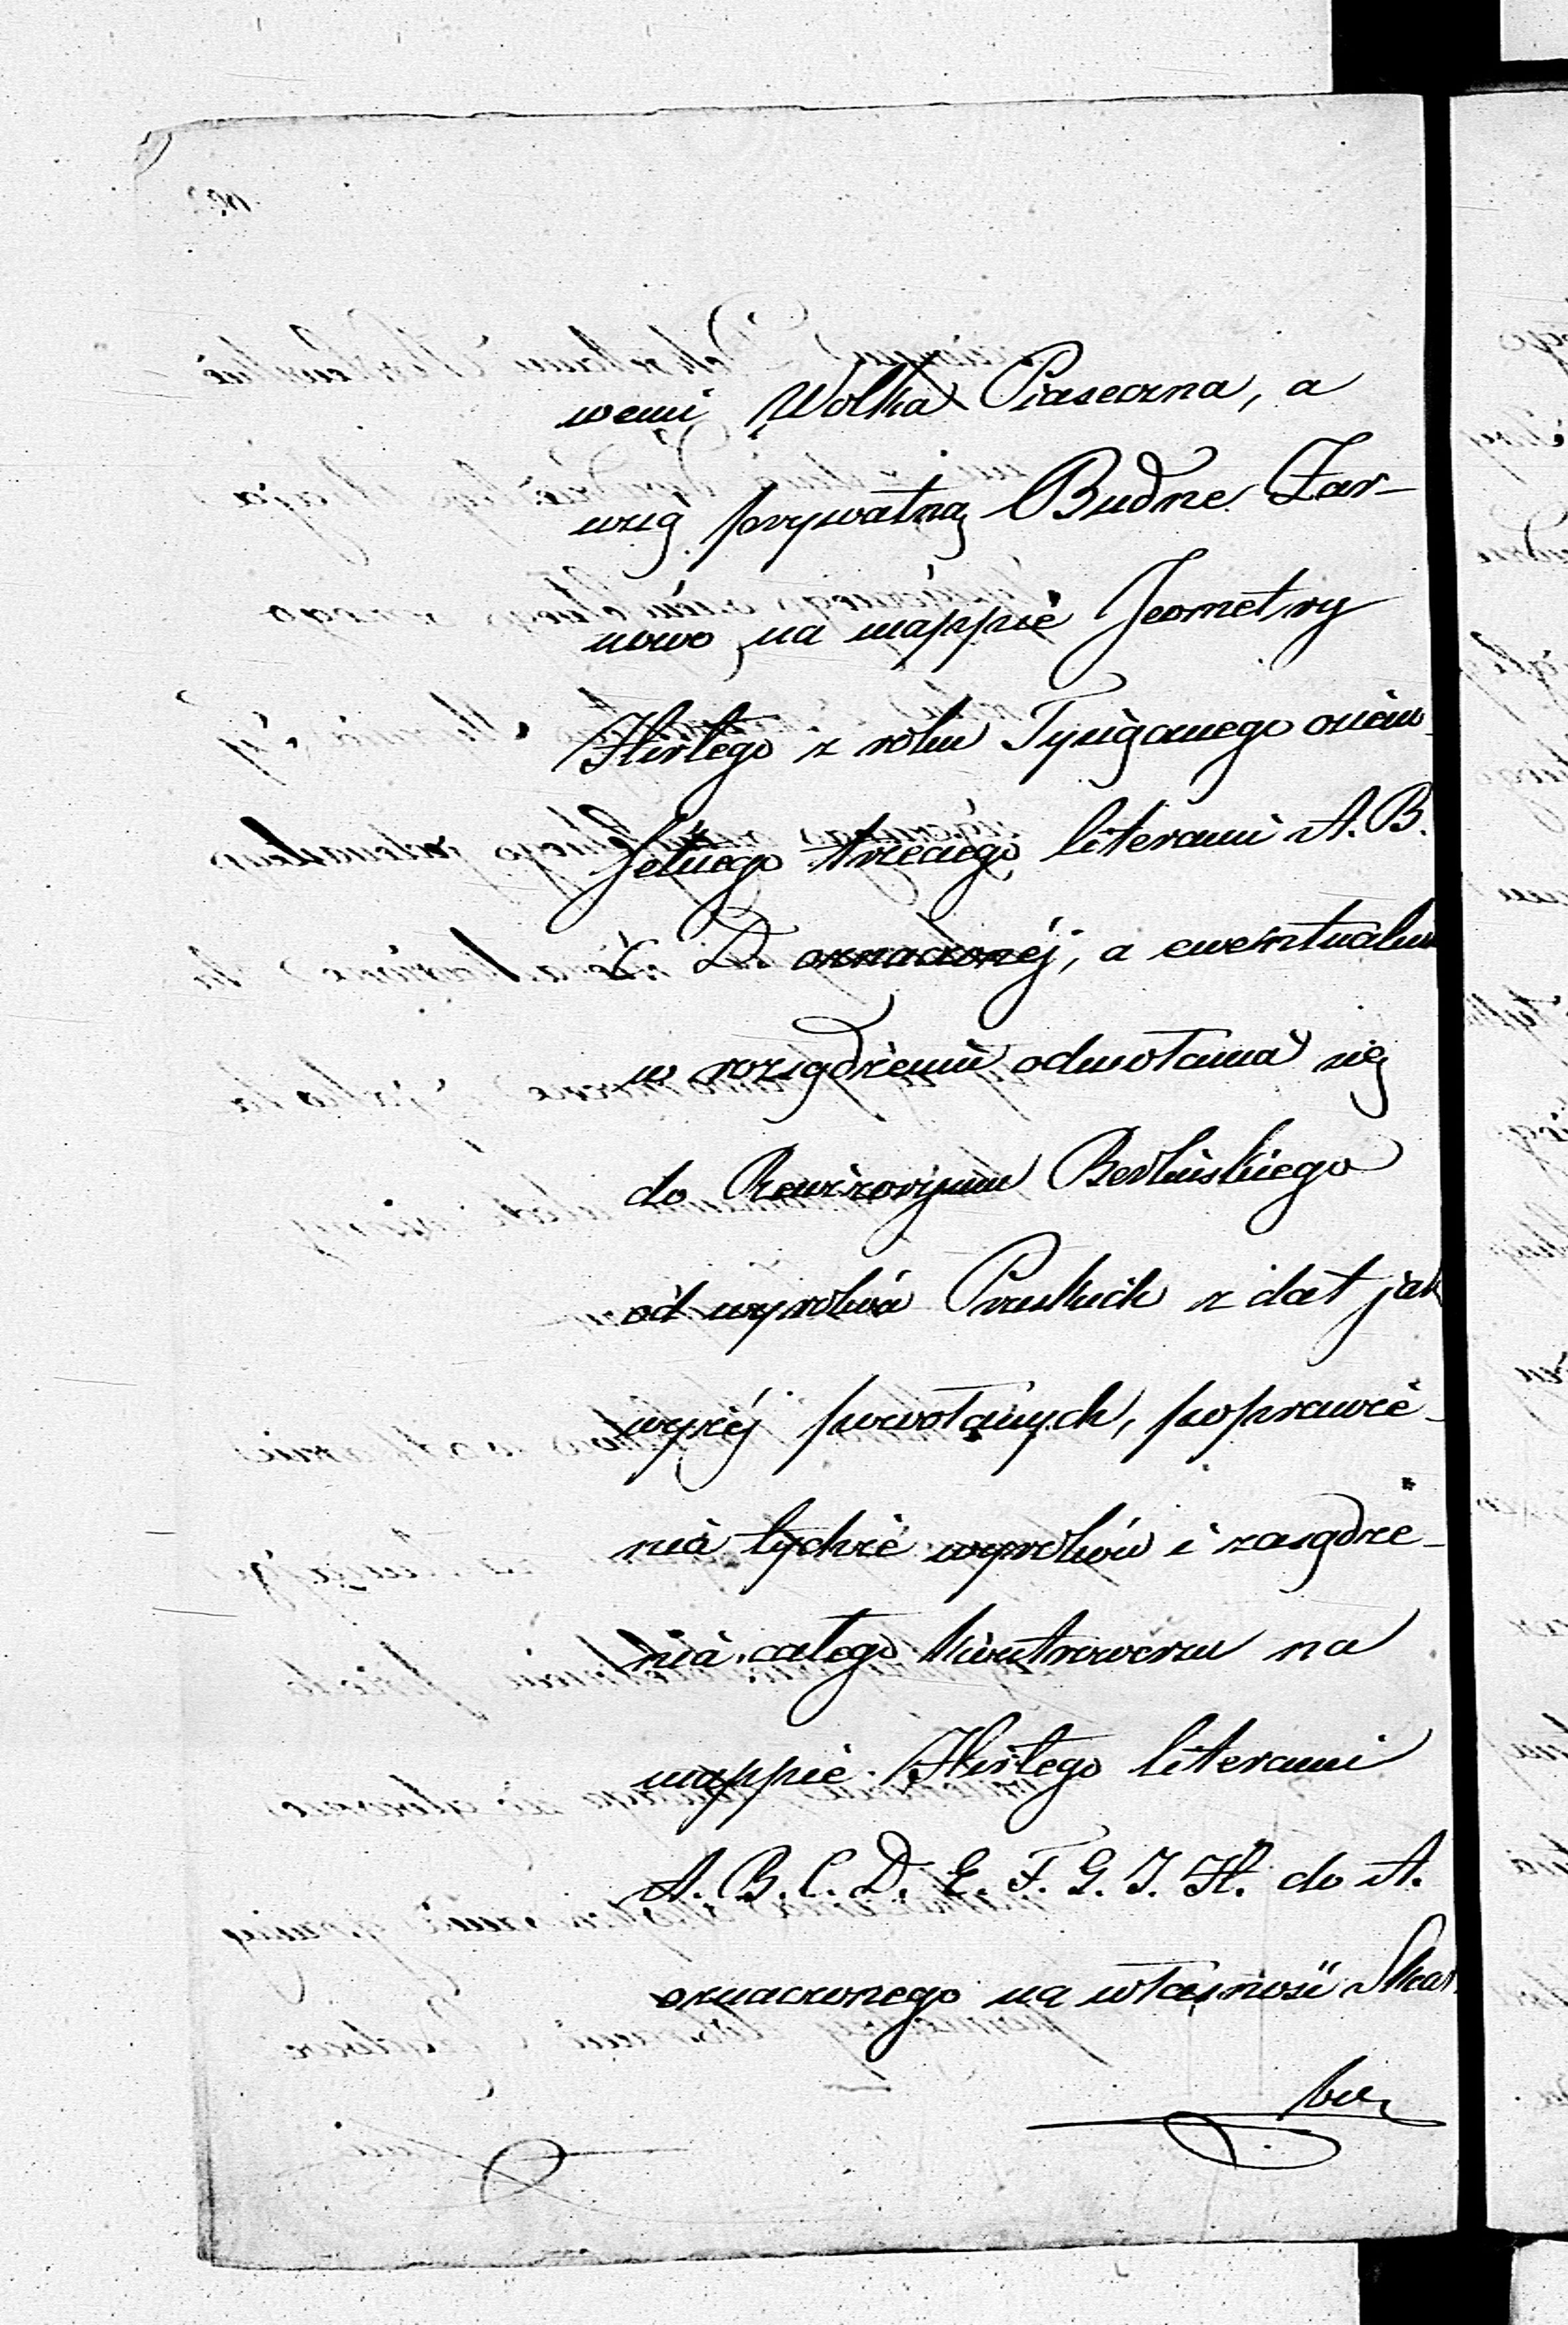 wemi Wolka Piaseczna, a
wsią prywatną Budne Żar-
nowo na mappie Jeometry
Hirlego z roku Tysiąanego ośiem-
setnego trzeciego literami A. B.
C D oznaczonéj, a ewentualnie
w rozsądzeniu odwołania się
do Rewizoryum Berlinskiego
od wyroków Pruskich z dat jak
wyżéj powołanych, poprawie-
nia tychże wyroków i zasądze-
nia całego kontrowersu na
mappie Hirlego literami
A. B. C. D. E. F. G. J. H. do A.
oznaczonego na własność Skar-
bu